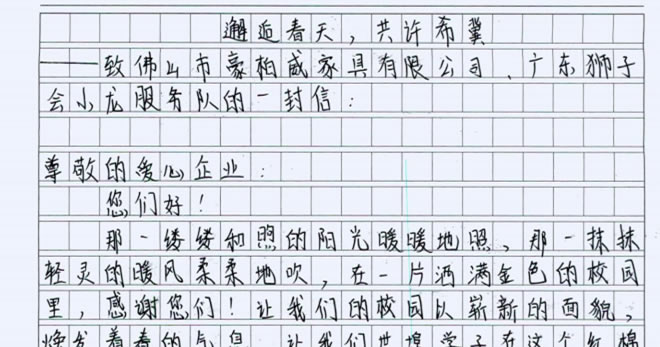 邂逅春天，共许希翼
——致佛山市豪柏威家具有限公司、广东狮子
会小龙服务队的一封信：
尊敬的爱心企业：
您们好！
那一缕缕和煦的阳光暖暖地照，那一抹抹
轻灵的暖风柔柔地吹，在一片洒满金色的校园
里，感谢您们！让我们的校园以崭新的面貌，
焕发着春的气息，让我们世埠学子在这个红棉